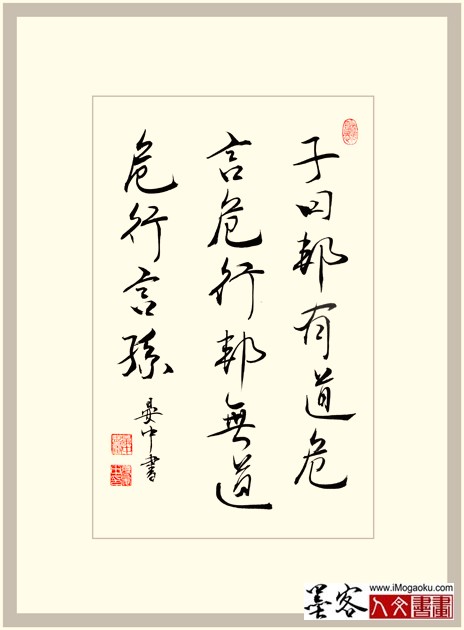 子曰邦有道危
言危行邦無道
危行言孫
晏中書
墨客
www.iMogaoku.com
人文書畫